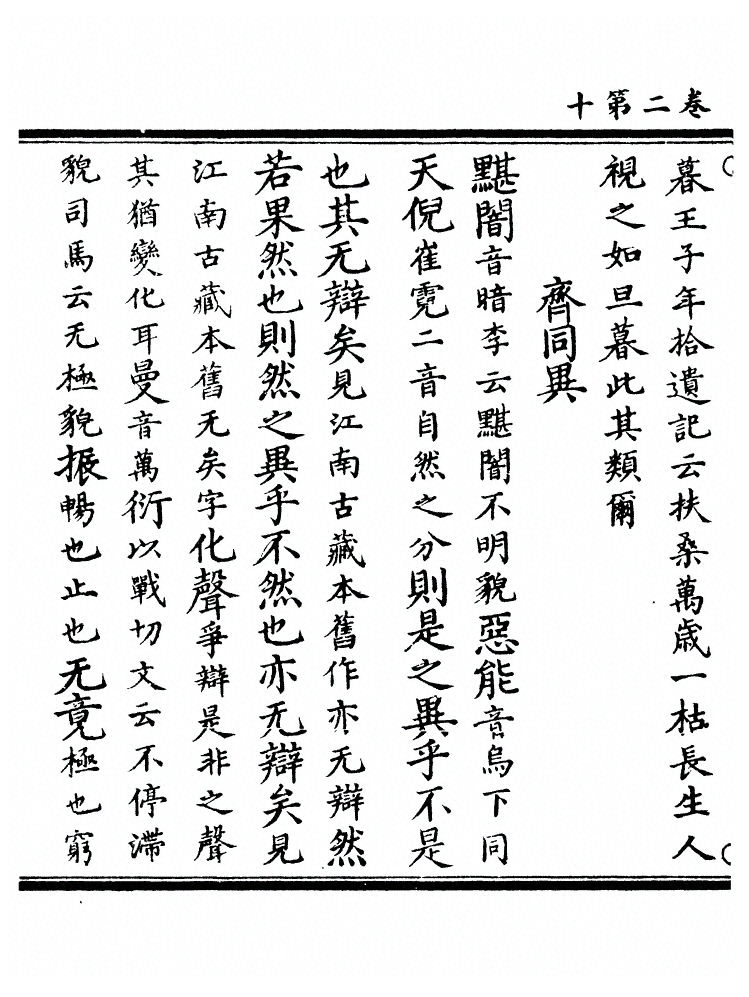 卷二第十
暮王子年拾遺記云扶桑萬歲一枯長生人
視之如旦暮此其類爾
齊同異
黮闇音暗李云黮闇不明貌惡能音烏下同
天倪崔霓二音自然之分則是之異乎不是
也其无辯矣見江南古藏本舊作亦无辯然
若果然也則然之異乎不然也亦无辯矣見
江南古藏本舊无矣字化聲爭辯是非之聲
其猶變化耳曼音萬衍以戰切文云不停滯
貌司馬云无極貌振暢也止也无竟極也窮